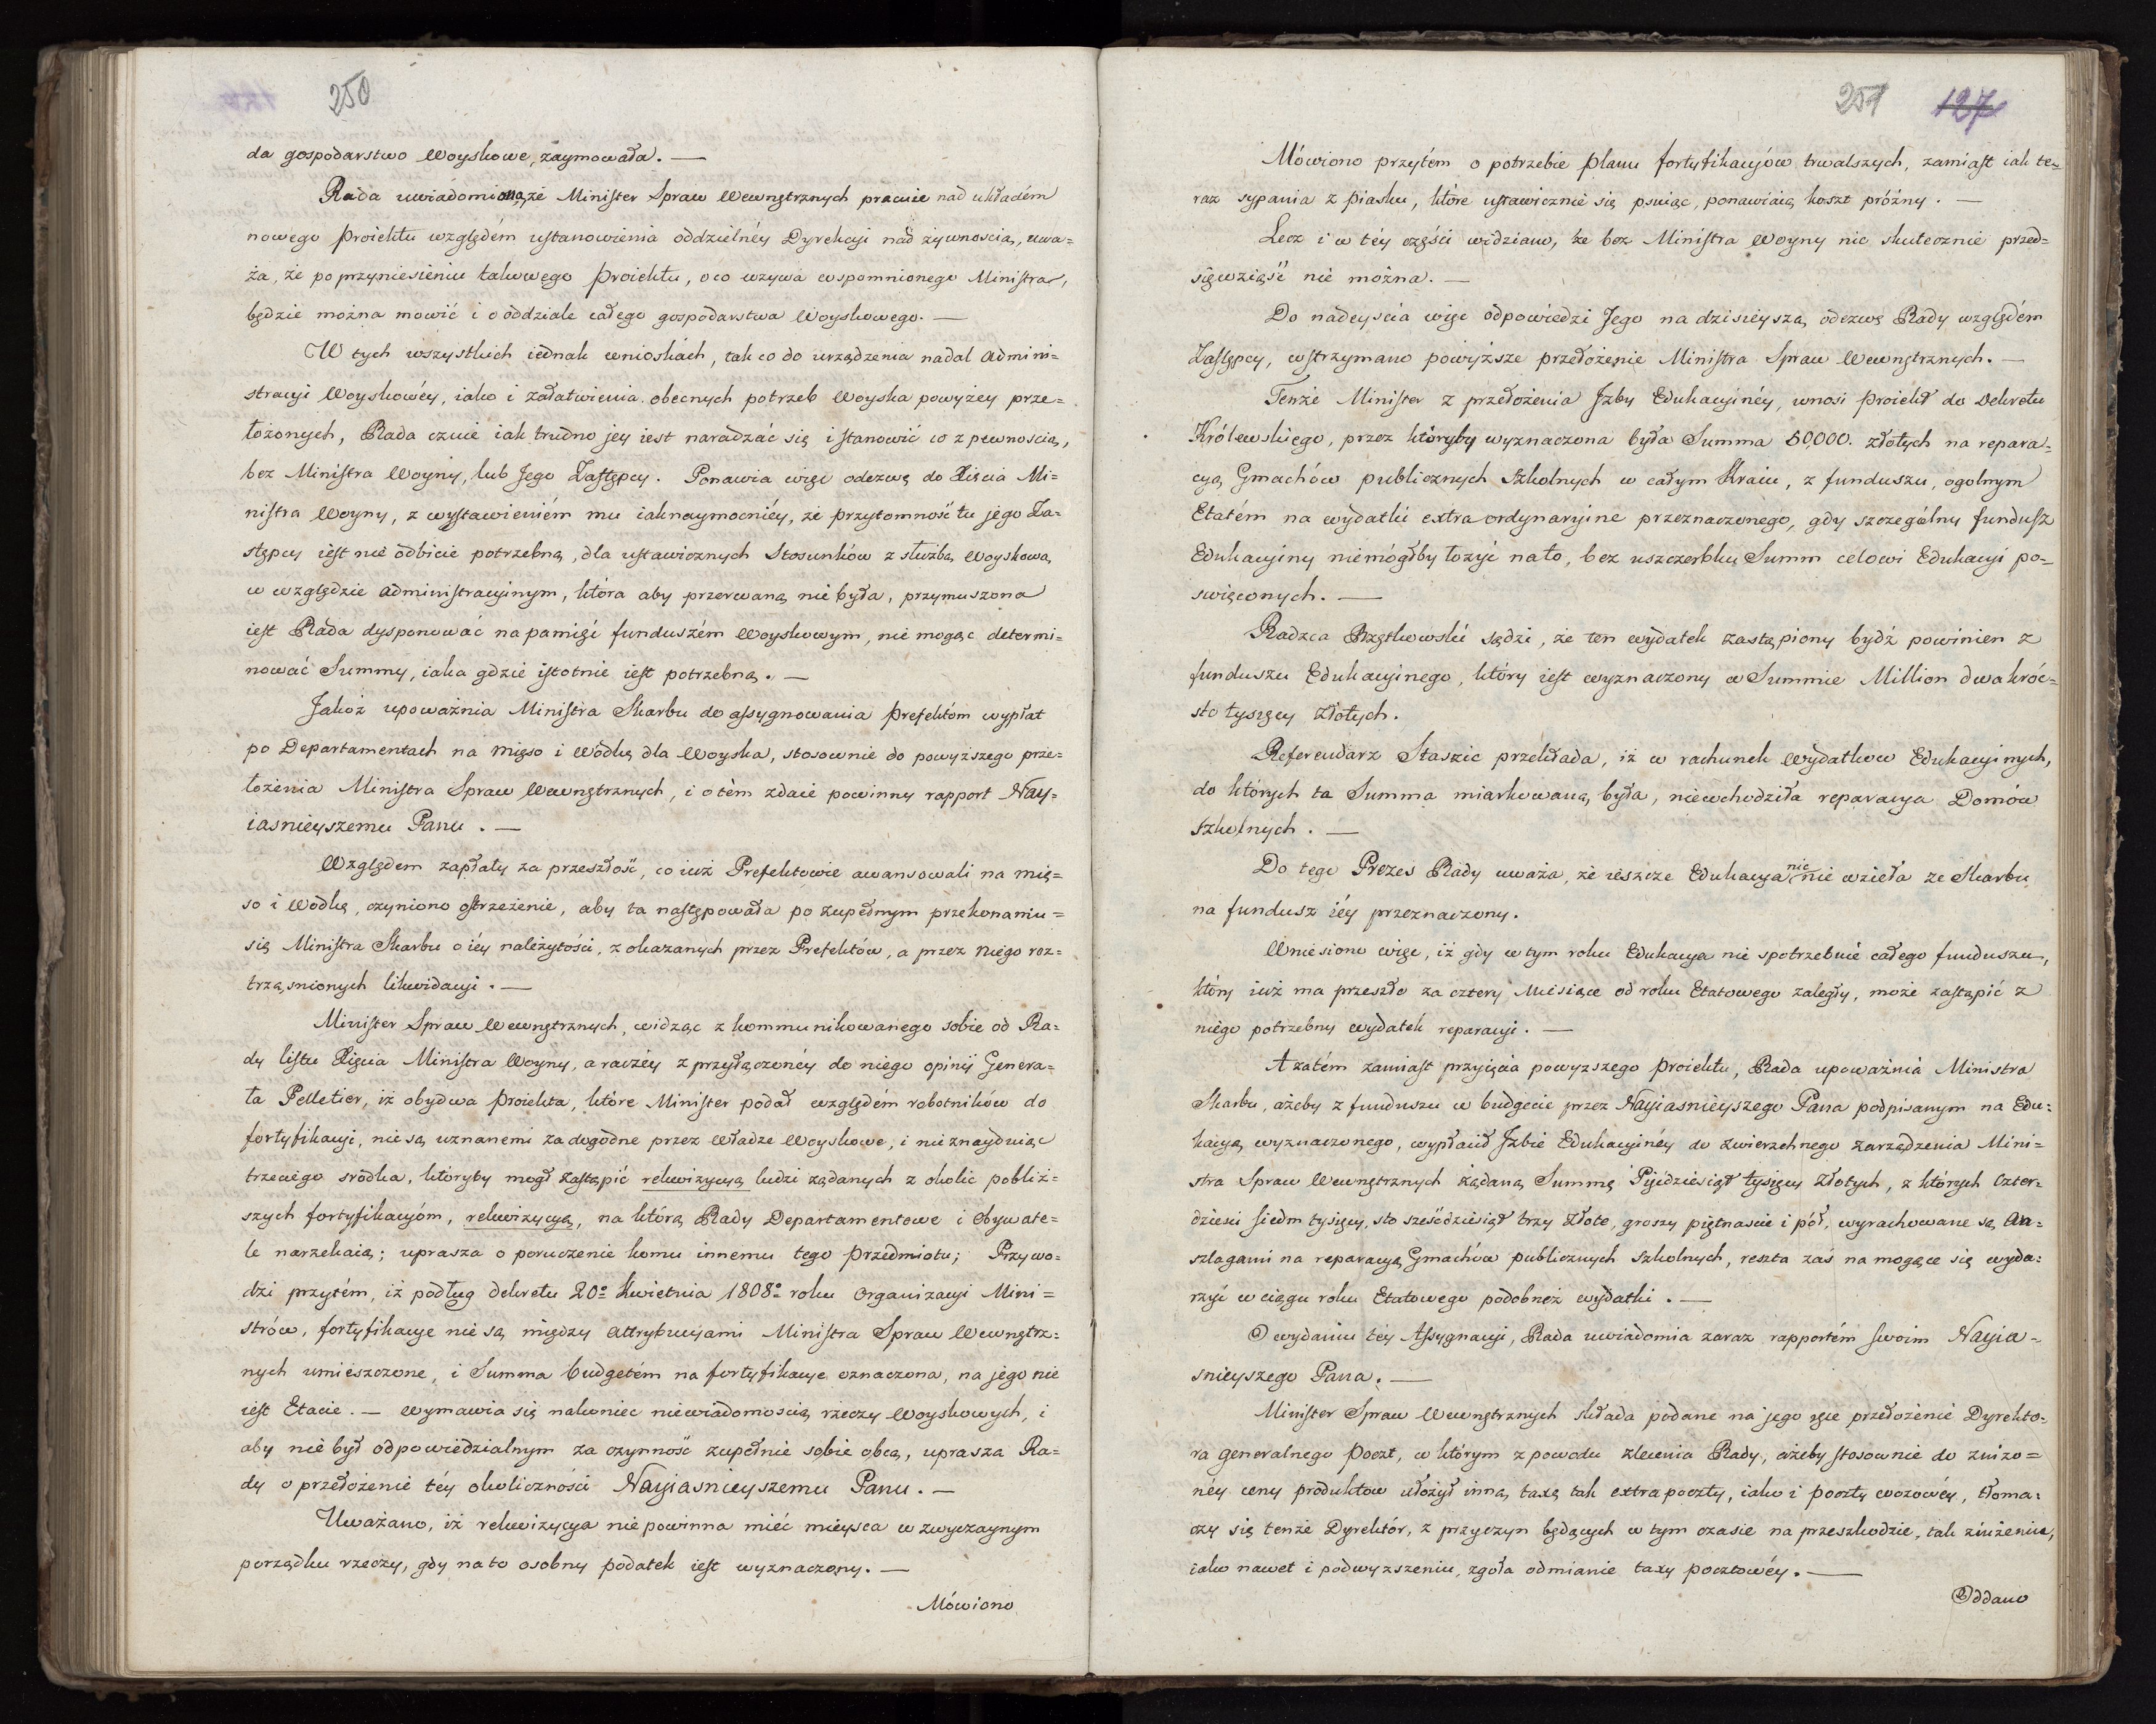 250
da gospodarstwo Woyskowe, zaymowała. —
Rada uwiadomiona, że Minister Spraw Wewnętrznych pracuie nad układém
nowego Proiektu względém ustanowienia oddzielnéy Dyrekcyi nad żywnością, uwa=
ża, że po przyniesieniu takowego Proiektu, o co wzywa wspomnionego Ministra,
będzie można mowić i o oddziale całego gospodarstwa Woyskowego. —
W tych wszystkich iednak wnioskach, tak co do urządzenia nadal Admini=
stracyi Woyskowéy, iako i załatwienia obecnych potrzeb Woyska powyżey prze=
łożonych, Rada czuie iak trudno jey iest naradzać się i stanowić co z pewnością,
bez Ministra Woyny, lub Jego Zastępcy. Ponawia więc odezwę do Xięcia Mi=
nistra Woyny, z wystawieniém mu iaknaymocniéy, że przytomność tu jego Za=
stępcy iest nie odbicie potrzebną, dla ustawicznych Stosunków z służbą Woyskową
w względzie administracyinym, która aby przerwaną nie była, przymuszona
iest Rada dysponować na pamięć funduszém Woyskowym, nie mogąc determi=
nować Summy, iaka gdzie istotnie iest potrzebną. —
Jakoż upoważnia Ministra Skarbu do assygnowania Prefektóm wypłat
po Departamentach na Mięso i Wódkę dla Woyska, stosownie do powyższego prze=
łożenia Ministra Spraw Wewnętrznych, i o tém zdaie powinny rapport Nay=
iasnieyszemu Panu. —
Względem zapłaty za przeszłość, co iuż Prefektowie awansowali na mię=
so i Wódkę, czyniono ostrzeżenie, aby ta następowała po zupełnym przekonaniu=
się Ministra Skarbu o iéy należytości, z okazanych przez Prefektów, a przez niego roz=
trząsnionych likwidacyi. —
Minister Spraw Wewnętrznych, widząc z kommunikowanego sobie od Ra=
dy listu Xięcia Ministra Woyny, a raczéy z przyłączonéy do niego opinii Genera=
ła Pelletier, iż obydwa Proiekta, które Minister podał względem robotników do
fortyfikacyi, nie są uznanemi za dogodne przez Władze Woyskowe, i nie znayduiąc
trzeciego srodka, któryby mógł zastąpić rekwizycyą ludzi żądanych z okolic pobliż=
szych fortyfikacyóm, rekwizycyą, na którą Rady Departamentowe i Obywate=
le narzekaią; uprasza o poruczenie komu innemu tego Przedmiotu; Przywo=
dzi przytém, iż podług dekretu 20º Kwietnia 1808º roku Organizacyi Mini=
strów, fortyfikacye nie są między attrybucyami Ministra Spraw Wewnętrz=
nych umieszczone, i Summa budgetém na fortyfikacye oznaczona, na jego nie
iest Etacie. — Wymawia się nakoniec niewiadomością rzeczy Woyskowych, i
aby nie był odpowiedzialnym za czynność zupełnie sobie obcą, uprasza Ra=
dy o przełożenie téy okoliczności Nayiasnieyszemu Panu. —
Uważano, iż rekwizycya nie powinna mieć mieysca w zwyczaynym
porządku rzeczy, gdy na to osobny podatek iest wyznaczony. —
Mówiono
251 127
Mówiono przytém o potrzebie planu fortyfikacyów trwalszych, zamiast iak te=
raz sypania z piasku, które ustawicznie się psuiąc, ponawiaią koszt próżny. —
Lecz i w téy części widziano, że bez Ministra Woyny nic skutecznie przed=
sięwziąść nie można. —
Do nadeyscia więc odpowiedzi Jego na dzisieyszą odezwę Rady względém
Zastępcy, wstrzymano powyższe przełożenie Ministra Spraw Wewnętrznych. —
Tenże Minister z przełożenia Izby Edukacyinéy, wnosi Proiekt do Dekretu
Królewskiego, przez któryby wyznaczona była Summa 50,000. złotych na repara=
cyą Gmachów publicznych Szkolnych w całym Kraiu, z funduszu, ogolnym
Etatém na wydatki extraordynaryine przeznaczonego, gdy szczególny fundusz
Edukacyiny niemógłby łożyć na to, bez uszczerbku Summ celowi Edukacyi po=
swięconych. —
Radzca Rzętkowski sądzi, że ten wydatek zastąpiony bydź powinien z
funduszu Edukacyinego, który iest wyznaczony w Summie Million dwakróc=
sto tysięcy Złotych.
Referendarz Staszic przekłada, iż w rachunek Wydatków Edukacyinych,
do których ta Summa miarkowaną była, niewchodziła reparacya Domów
Szkolnych. —
Do tego Prezes Rady uważa, że ieszcze Edukacya nic nie wzieła ze Skarbu
na fundusz iéy przeznaczony.
Wniesiono więc, iż gdy w tym roku Edukacya nie spotrzebuie całego funduszu,
który iuż ma przeszło za cztery Miesiące od roku Etatowego zaległy, może zastąpić z
niego potrzebny wydatek reparacyi. —
A zatém zamiast przyięcia powyzszego Proiektu, Rada upoważnia Ministra
Skarbu, ażeby z funduszu w budgecie przez Nayiasnieyszego Pana podpisanym na Edu=
kacyą wyznaczonego, wypłacił Izbie Edukacyinéy do zwierzchnego zarządzenia Mini=
stra Spraw Wewnętrznych żądaną Summę Pięćdziesiąt tysięcy Złotych, z których czter=
dziesci siedm tysięcy, sto sześćdziesiąt trzy Złote, groszy piętnascie i pół, wyrachowane są An=
szlagami na reparacyą Gmachów publicznych Szkolnych, reszta zaś na mogące się wyda=
rzyć w ciągu roku Etatowego podobneż wydatki. —
O wydaniu téy Assygnacyi, Rada uwiadomia zaraz rapportém swoim Nayia=
snieyszego Pana. —
Minister Spraw Wewnętrznych składa podane na jego ręce przełożenie Dyrekto=
ra Generalnego Poczt, w którym z powodu zlecenia Rady, ażeby stosownie do zniżo=
néy ceny produktów ułożył inną taxę tak extrapoczty, iako i poczty wozowéy, tłoma=
czy się tenże Dyrektór, z przyczyn będących w tym czasie na przeszkodzie, tak zniżeniu,
iako nawet i podwyzszeniu, zgoła odmianie taxy pocztowéy. —
Oddano